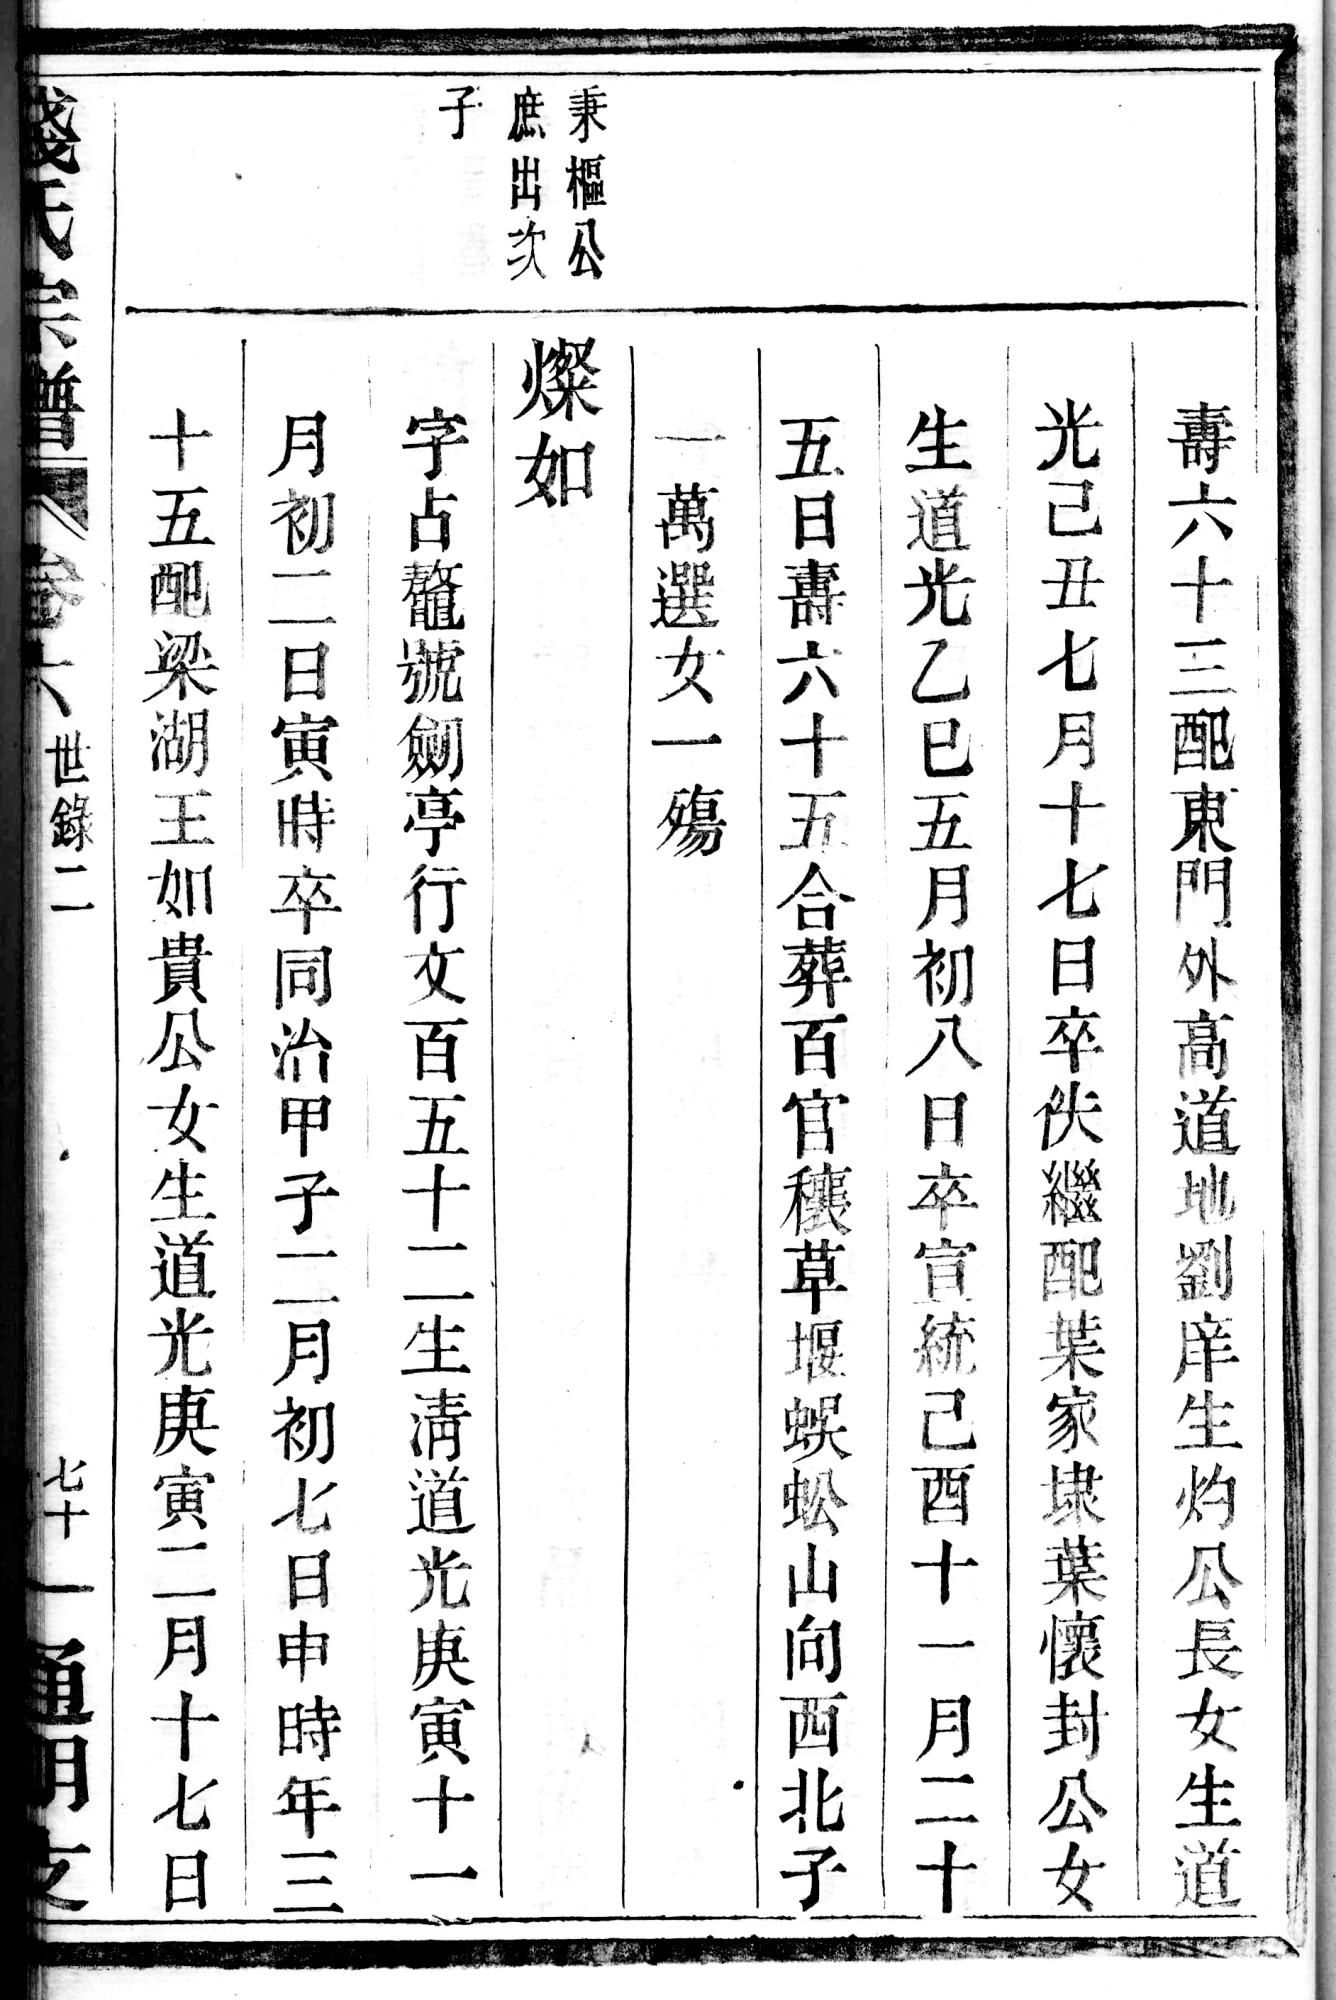 秉樞公
庶出次
子
壽六十三配東門外高道地劉庠生灼公長女生道
光己丑七月十七日卒佚繼配葉家埭葉懷封公女
生道光乙巳五月初八日卒宣統己酉十一月二十
五日壽六十五合葬百官穰草堰蜈蚣山向西北子
一萬選女一殤
燦如
字占鼇號劍亭行文百五十二生淸道光庚寅十一
月初二日寅時卒同治甲子二月初七日申時年三
十五配梁湖王如貴公女生道光庚寅二月十七日
錢氏宗譜 卷六 世錄二 七十一 通明支